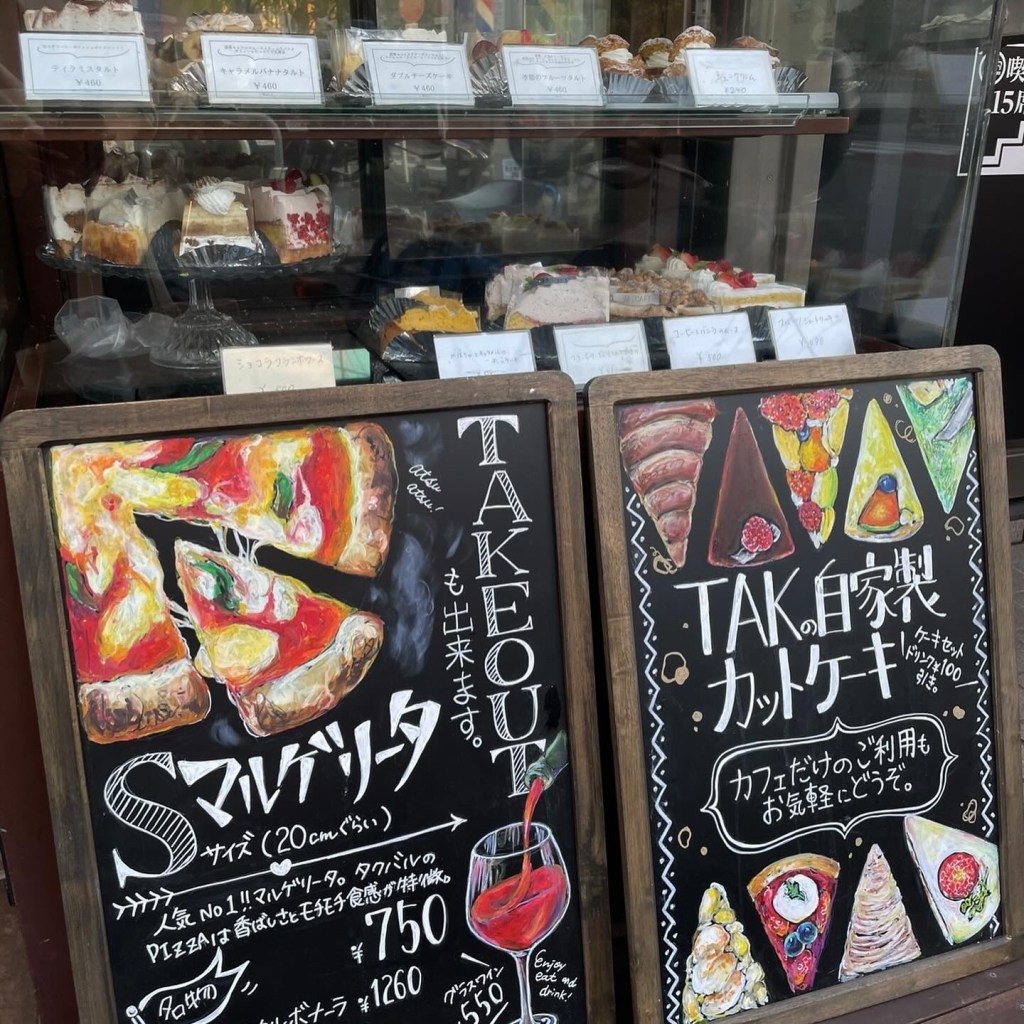 ティラミスタルト
¥460
キャラメルバナナタルト
¥460
ダブルチーズケーキ
¥460
¥460
シュークリーム
¥240
喫
15席
ショコラフランボワーズ
TAKEOUT
も出来ます。
atsu
atsu!
Sサイズ(20cmぐらい)
マルゲリータ
人気No1!!マルゲリータ。タクバルの
PIZZAは香ばしさとモチモチ食感が特徴。
¥750
名物
カルボナーラ ¥1260
グラスワイン
550
Enjoy
eat and
drink!
TAKの自家製
カットケーキ
ケーキセット
ドリンク¥100
引き。
カフェだけのご利用も
お気軽にどうぞ。